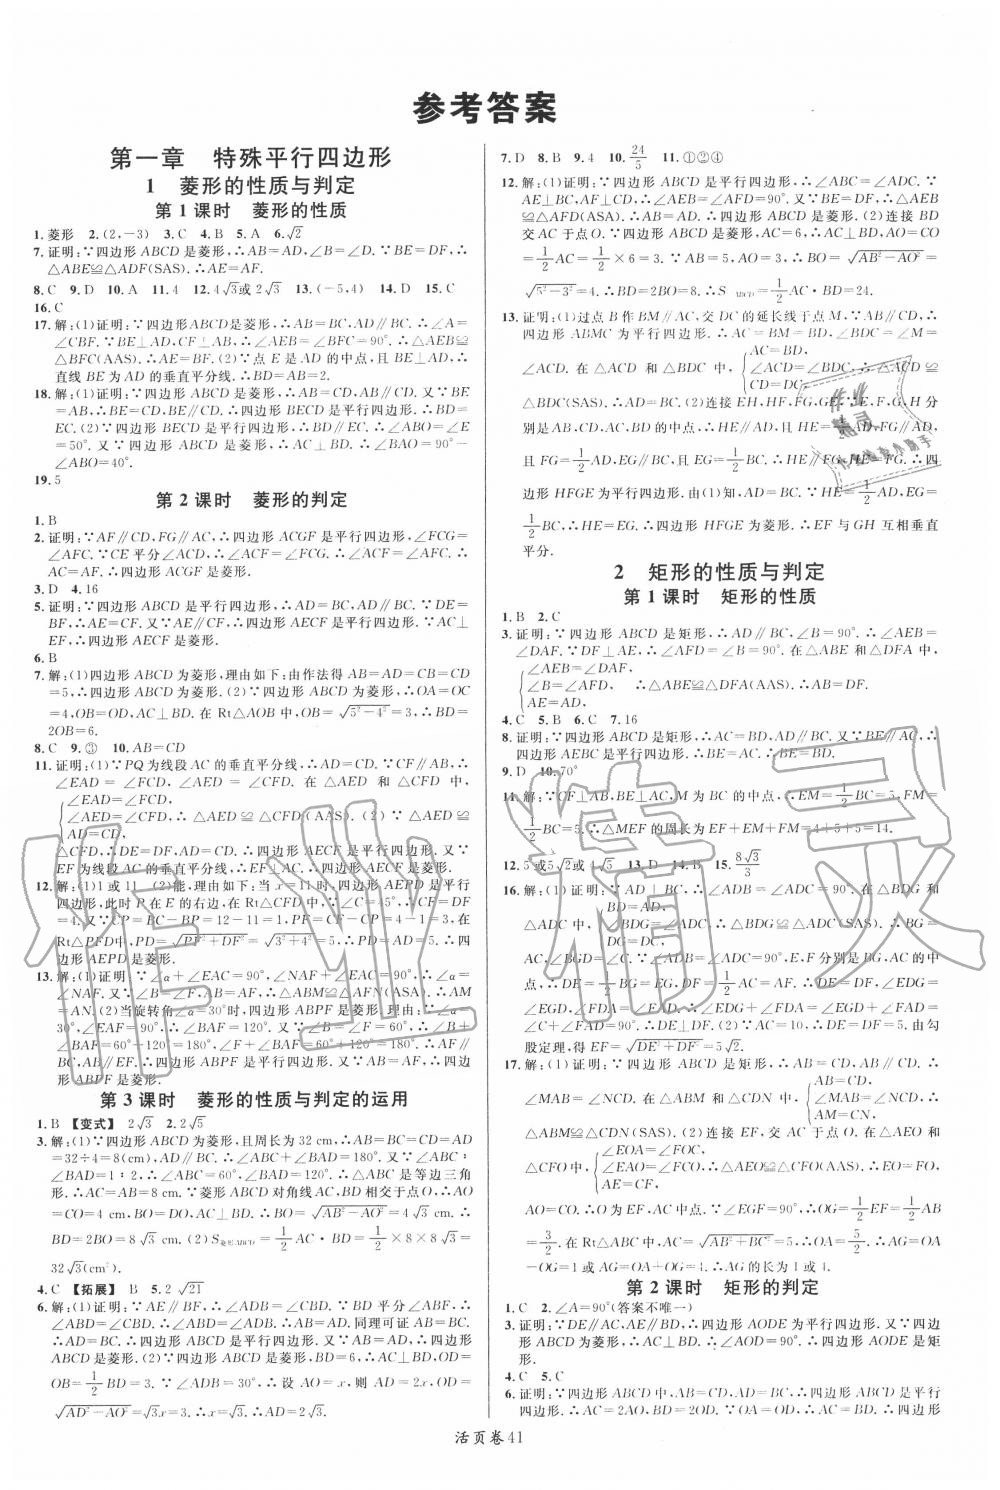 参考答案
第一章　特殊平行四边形
1　菱形的性质与判定
第1课时　菱形的性质
1.菱形　2.(2,-3)　3.C　4.B　5.A　6.√2
7.证明:∵四边形ABCD是菱形,∴AB=AD,∠B=∠D.∵BE=DF,∴
△ABE≌△ADF(SAS).∴AE=AF.
8.C　9.D　10.A　11.4　12.4√3或2√3　13.(-5,4)　14.D　15.C
16.C
17.解:(1)证明:∵四边形ABCD是菱形,∴AB=BC,AD∥BC.∴∠A=
∠CBF.∵BE⊥AD,CF⊥AB,∴∠AEB=∠BFC=90°.∴△AEB≌
△BFC(AAS).∴AE=BF.(2)∵点E是AD的中点,且BE⊥AD,∴
直线BE为AD的垂直平分线.∴BD=AB=2.
18.解:(1)证明:∵四边形ABCD是菱形,∴AB=CD,AB∥CD.又∵BE=
AB,∴BE=CD,BE∥CD.∴四边形BECD是平行四边形.∴BD=
EC.(2)∵四边形BECD是平行四边形,∴BD∥EC.∴∠ABO=∠E
=50°.又∵四边形ABCD是菱形,∴AC⊥BD.∴∠BAO=90°-
∠ABO=40°.
19.5
第2课时　菱形的判定
1.B
2.证明:∵AF∥CD,FG∥AC,∴四边形ACGF是平行四边形,∠FCG=
∠AFC.∵CE平分∠ACD,∴∠ACF=∠FCG.∴∠ACF=∠AFC.∴
AC=AF.∴四边形ACGF是菱形.
3.D　4.16
5.证明:∵四边形ABCD是平行四边形,∴AD=BC,AD∥BC.∵DE=
BF,∴AE=CF.又∵AE∥CF,∴四边形AECF是平行四边形.∵AC⊥
EF,∴四边形AECF是菱形.
6.B
7.解:(1)四边形ABCD为菱形,理由如下:由作法得AB=AD=CB=CD
=5,∴四边形ABCD为菱形.(2)∵四边形ABCD为菱形,∴OA=OC
=4,OB=OD,AC⊥BD.在Rt△AOB中,OB=√(5²-4²)=3,∴BD=
2OB=6.
8.C　9.③　10.AB=CD
11.证明:(1)∵PQ为线段AC的垂直平分线,∴AD=CD.∵CF∥AB,∴
∠EAD=∠FCD,∠AED=∠CFD.在△AED和△CFD中,
∠EAD=∠FCD,
∠AED=∠CFD,∴△AED≌△CFD(AAS).(2)∵△AED≌
△CFD,∴DE=DF,AE=CF.∴四边形AECF是平行四边形.又∵
EF为线段AC的垂直平分线,∴EF⊥AC.∴四边形AECF是菱形.
12.解:(1)1或11　(2)能,理由如下:当x=11时,四边形AEPD是平行
四边形,此时P在E的右边,在Rt△CFD中,∵∠C=45°,∴CF=DF
=4.又∵CP=BC-BP=12-11=1,∴PF=CF-CP=4-1=3.在
Rt△PFD中,PD=√(PF²+DF²)=√(3²+4²)=5.∴PD=AD=5.∴四
边形AEPD是菱形.
13.解:(1)证明:∵∠α+∠EAC=90°,∠NAF+∠EAC=90°,∴∠α=
∠NAF.又∵∠B=∠F,AB=AF,∴△ABM≌△AFN(ASA).∴AM
=AN.(2)当旋转角∠α=30°时,四边形ABPF是菱形.理由:∵∠α=
30°,∠EAF=90°,∴∠BAF=120°.又∵∠B=∠F=60°,∴∠B+
∠BAF=60°+120°=180°,∠F+∠BAF=60°+120°=180°.∴AF∥
BC,AB∥EF.∴四边形ABPF是平行四边形.又∵AB=AF,∴四边
形ABPF是菱形.
第3课时　菱形的性质与判定的运用
1.B　【变式】2√3　2.2√5
3.解:(1)∵四边形ABCD为菱形,且周长为32 cm,∴AB=BC=CD=AD
=32÷4=8(cm),AD∥BC.∴∠ABC+∠BAD=180°.又∵∠ABC∶
∠BAD=1∶2,∴∠ABC=60°,∠BAD=120°.∴△ABC是等边三角
形.∴AC=AB=8 cm.∵菱形ABCD对角线AC,BD相交于点O,∴AO
=CO=4 cm,BO=DO,AC⊥BD.∴BO=√(AB²-AO²)=4√3 cm.∴
BD=2BO=8√3 cm.(2)S菱形ABCD=1/2AC·BD=1/2×8×8√3=
32√3(cm²).
4.C　【拓展】B　5.2√21
6.解:(1)证明:∵AE∥BF,∴∠ADB=∠CBD.∵BD平分∠ABF,∴
∠ABD=∠CBD.∴∠ABD=∠ADB.∴AB=AD.同理可证AB=BC.
∴AD=BC.∴四边形ABCD是平行四边形.又∵AB=AD,∴四边形
ABCD是菱形.(2)∵四边形ABCD是菱形,BD=6,∴AC⊥BD,OD=
OB=1/2BD=3.∵∠ADB=30°,∴设AO=x,则AD=2x,OD=
√(AD²-AO²)=√3x=3.∴x=√3.∴AD=2√3.
7.D　8.B　9.4　10.24/5　11.①②④
12.解:(1)证明:∵四边形ABCD是平行四边形,∴∠ABC=∠ADC.∵
AE⊥BC,AF⊥CD,∴∠AEB=∠AFD=90°.又∵BE=DF,∴△AEB
≌△AFD(ASA).∴AB=AD.∴四边形ABCD是菱形.(2)连接BD
交AC于点O.∵四边形ABCD是菱形,AC=6,∴AC⊥BD,AO=CO
=1/2AC=1/2×6=3.∵AB=5,AO=3,∴BO=√(AB²-AO²)=
√(5²-3²)=4.∴BD=2BO=8.∴S ABCD=1/2AC·BD=24.
13.证明:(1)过点B作BM∥AC,交DC的延长线于点M.∵AB∥CD,∴
四边形ABMC为平行四边形.∴AC=BM=BD,∠BDC=∠M=
∠ACD.在△ACD和△BDC中,AC=BD,
∠ACD=∠BDC,∴△ACD≌
CD=DC,
△BDC(SAS).∴AD=BC.(2)连接EH,HF,FG,GE.∵E,F,G,H分
别是AB,CD,AC,BD的中点,∴HE∥AD,且HE=1/2AD,FG∥AD,
且FG=1/2AD,EG∥BC,且EG=1/2BC.∴HE∥FG,HE=FG.∴四
边形HFGE为平行四边形.由(1)知,AD=BC.∵HE=1/2AD,EG=
1/2BC,∴HE=EG.∴四边形HFGE为菱形.∴EF与GH互相垂直
平分.
2　矩形的性质与判定
第1课时　矩形的性质
1.B　2.C
3.证明:∵四边形ABCD是矩形,∴AD∥BC,∠B=90°.∴∠AEB=
∠DAF.∵DF⊥AE,∴∠AFD=∠B=90°.在△ABE和△DFA中,
∠AEB=∠DAF,
∠B=∠AFD,　∴△ABE≌△DFA(AAS).∴AB=DF.
AE=AD,
4.C　5.B　6.C　7.16
8.证明:∵四边形ABCD是矩形,∴AC=BD,AD∥BC.又∵BE∥AC,∴
四边形AEBC是平行四边形.∴BE=AC.∴BE=BD.
9.D　10.70°
11.解:∵CF⊥AB,BE⊥AC,M为BC的中点,∴EM=1/2BC=5,FM=
1/2BC=5.∴△MEF的周长为EF+EM+FM=4+5+5=14.
12.5或5√2或4√5　13.D　14.B　15.8√3/3
16.解:(1)证明:∵AD⊥BC,∴∠ADB=∠ADC=90°.在△BDG和
△ADC中,BD=AD,
∠BDG=∠ADC,∴△BDG≌△ADC(SAS).∴BG=
DG=DC,
AC,∠BGD=∠C.∵∠ADB=∠ADC=90°,E,F分别是BG,AC的中
点,∴DE=1/2BG=EG,DF=1/2AC=AF.∴DE=DF,∠EDG=
∠EGD,∠FDA=∠FAD.∴∠EDG+∠FDA=∠EGD+∠FAD=
∠C+∠FAD=90°.∴DE⊥DF.(2)∵AC=10,∴DE=DF=5.由勾
股定理,得EF=√(DE²+DF²)=5√2.
17.解:(1)证明:∵四边形ABCD是矩形,∴AB=CD,AB∥CD.∴
∠MAB=∠NCD.在△ABM和△CDN中,AB=CD,
∠MAB=∠NCD,∴
AM=CN,
△ABM≌△CDN(SAS).(2)连接EF,交AC于点O.在△AEO和
△CFO中,∠EOA=∠FOC,
∠EAO=∠FCO,∴△AEO≌△CFO(AAS).∴EO=FO,
AE=CF,
AO=CO.∴O为EF,AC中点.∵∠EGF=90°,∴OG=1/2EF=1/2AB
=3/2.在Rt△ABC中,AC=√(AB²+BC²)=5,∴OA=5/2.∴AG=
OA-OG=1或AG=OA+OG=4.∴AG的长为1或4.
第2课时　矩形的判定
1.C　2.∠A=90°(答案不唯一)
3.证明:∵DE∥AC,AE∥BD,∴四边形AODE为平行四边形.∵四边形
ABCD为菱形,∴AC⊥BD.∴∠AOD=90°.∴四边形AODE是矩
形.
4.C　5.C
6.证明:∵四边形ABCD中,AB∥CD,∠BAD=90°,
四边形.∴AC=2AO,BD=2OD.∵OA=OD,∴AC=BD.∴四边形
活页卷41
作业精灵